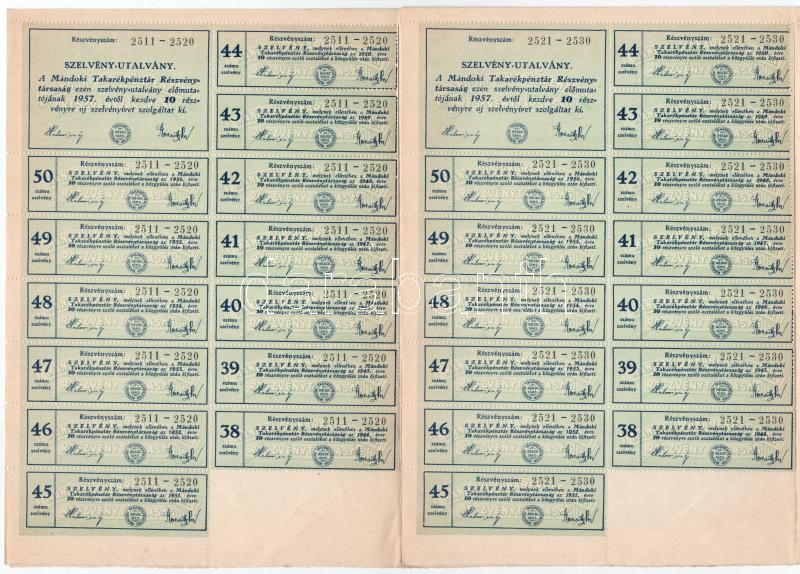 Részvényszám: 2511 - 2520
SZELVÉNY-UTALVÁNY.
A Mándoki Takarékpénztár Részvény-
társaság ezen szelvény-utalvány előmuta-
tójának 1957. évtől kezdve 10 rész-
vényre uj szelvényivet szolgáltat ki.
50
számu
szelvény
Részvényszám: 2511 - 2520
SZELVÉNY, melynek ellenében a Mándoki
Takarékpénztár Részvénytársaság az 1956. évre
10 részvényre szóló osztalékot a közgyűlés után kifizeti.
49
számu
szelvény
Részvényszám: 2511 - 2520
SZELVÉNY, melynek ellenében a Mándoki
Takarékpénztár Részvénytársaság az 1955. évre
10 részvényre szóló osztalékot a közgyűlés után kifizeti.
48
számu
szelvény
Részvényszám: 2511 - 2520
SZELVÉNY, melynek ellenében a Mándoki
Takarékpénztár Részvénytársaság az 1954. évre
10 részvényre szóló osztalékot a közgyűlés után kifizeti.
47
számu
szelvény
Részvényszám: 2511 - 2520
SZELVÉNY, melynek ellenében a Mándoki
Takarékpénztár Részvénytársaság az 1953. évre
10 részvényre szóló osztalékot a közgyűlés után kifizeti.
46
számu
szelvény
Részvényszám: 2511 - 2520
SZELVÉNY, melynek ellenében a Mándoki
Takarékpénztár Részvénytársaság az 1952. évre
10 részvényre szóló osztalékot a közgyűlés után kifizeti.
45
számu
szelvény
Részvényszám: 2511 - 2520
SZELVÉNY, melynek ellenében a Mándoki
Takarékpénztár Részvénytársaság az 1951. évre
10 részvényre szóló osztalékot a közgyűlés után kifizeti.
44
számu
szelvény
Részvényszám: 2511 - 2520
SZELVÉNY, melynek ellenében a Mándoki
Takarékpénztár Részvénytársaság az 1950. évre
10 részvényre szóló osztalékot a közgyűlés után kifizeti.
43
számu
szelvény
Részvényszám: 2511 - 2520
SZELVÉNY, melynek ellenében a Mándoki
Takarékpénztár Részvénytársaság az 1949. évre
10 részvényre szóló osztalékot a közgyűlés után kifizeti.
42
számu
szelvény
Részvényszám: 2511 - 2520
SZELVÉNY, melynek ellenében a Mándoki
Takarékpénztár Részvénytársaság az 1948. évre
10 részvényre szóló osztalékot a közgyűlés után kifizeti.
41
számu
szelvény
Részvényszám: 2511 - 2520
SZELVÉNY, melynek ellenében a Mándoki
Takarékpénztár Részvénytársaság az 1947. évre
10 részvényre szóló osztalékot a közgyűlés után kifizeti.
40
számu
szelvény
Részvényszám: 2511 - 2520
SZELVÉNY, melynek ellenében a Mándoki
Takarékpénztár Részvénytársaság az 1946. évre
10 részvényre szóló osztalékot a közgyűlés után kifizeti.
39
számu
szelvény
Részvényszám: 2511 - 2520
SZELVÉNY, melynek ellenében a Mándoki
Takarékpénztár Részvénytársaság az 1945. évre
10 részvényre szóló osztalékot a közgyűlés után kifizeti.
38
számu
szelvény
Részvényszám: 2511 - 2520
SZELVÉNY, melynek ellenében a Mándoki
Takarékpénztár Részvénytársaság az 1944. évre
10 részvényre szóló osztalékot a közgyűlés után kifizeti.
Részvényszám: 2521 - 2530
SZELVÉNY-UTALVÁNY.
A Mándoki Takarékpénztár Részvény-
társaság ezen szelvény-utalvány előmuta-
tójának 1957. évtől kezdve 10 rész-
vényre uj szelvényivet szolgáltat ki.
50
számu
szelvény
Részvényszám: 2521 - 2530
SZELVÉNY, melynek ellenében a Mándoki
Takarékpénztár Részvénytársaság az 1956. évre
10 részvényre szóló osztalékot a közgyűlés után kifizeti.
49
számu
szelvény
Részvényszám: 2521 - 2530
SZELVÉNY, melynek ellenében a Mándoki
Takarékpénztár Részvénytársaság az 1955. évre
10 részvényre szóló osztalékot a közgyűlés után kifizeti.
48
számu
szelvény
Részvényszám: 2521 - 2530
SZELVÉNY, melynek ellenében a Mándoki
Takarékpénztár Részvénytársaság az 1954. évre
10 részvényre szóló osztalékot a közgyűlés után kifizeti.
47
számu
szelvény
Részvényszám: 2521 - 2530
SZELVÉNY, melynek ellenében a Mándoki
Takarékpénztár Részvénytársaság az 1953. évre
10 részvényre szóló osztalékot a közgyűlés után kifizeti.
46
számu
szelvény
Részvényszám: 2521 - 2530
SZELVÉNY, melynek ellenében a Mándoki
Takarékpénztár Részvénytársaság az 1952. évre
10 részvényre szóló osztalékot a közgyűlés után kifizeti.
45
számu
szelvény
Részvényszám: 2521 - 2530
SZELVÉNY, melynek ellenében a Mándoki
Takarékpénztár Részvénytársaság az 1951. évre
10 részvényre szóló osztalékot a közgyűlés után kifizeti.
44
számu
szelvény
Részvényszám: 2521 - 2530
SZELVÉNY, melynek ellenében a Mándoki
Takarékpénztár Részvénytársaság az 1950. évre
10 részvényre szóló osztalékot a közgyűlés után kifizeti.
43
számu
szelvény
Részvényszám: 2521 - 2530
SZELVÉNY, melynek ellenében a Mándoki
Takarékpénztár Részvénytársaság az 1949. évre
10 részvényre szóló osztalékot a közgyűlés után kifizeti.
42
számu
szelvény
Részvényszám: 2521 - 2530
SZELVÉNY, melynek ellenében a Mándoki
Takarékpénztár Részvénytársaság az 1948. évre
10 részvényre szóló osztalékot a közgyűlés után kifizeti.
41
számu
szelvény
Részvényszám: 2521 - 2530
SZELVÉNY, melynek ellenében a Mándoki
Takarékpénztár Részvénytársaság az 1947. évre
10 részvényre szóló osztalékot a közgyűlés után kifizeti.
40
számu
szelvény
Részvényszám: 2521 - 2530
SZELVÉNY, melynek ellenében a Mándoki
Takarékpénztár Részvénytársaság az 1946. évre
10 részvényre szóló osztalékot a közgyűlés után kifizeti.
39
számu
szelvény
Részvényszám: 2521 - 2530
SZELVÉNY, melynek ellenében a Mándoki
Takarékpénztár Részvénytársaság az 1945. évre
10 részvényre szóló osztalékot a közgyűlés után kifizeti.
38
számu
szelvény
Részvényszám: 2521 - 2530
SZELVÉNY, melynek ellenében a Mándoki
Takarékpénztár Részvénytársaság az 1944. évre
10 részvényre szóló osztalékot a közgyűlés után kifizeti.
darabanth